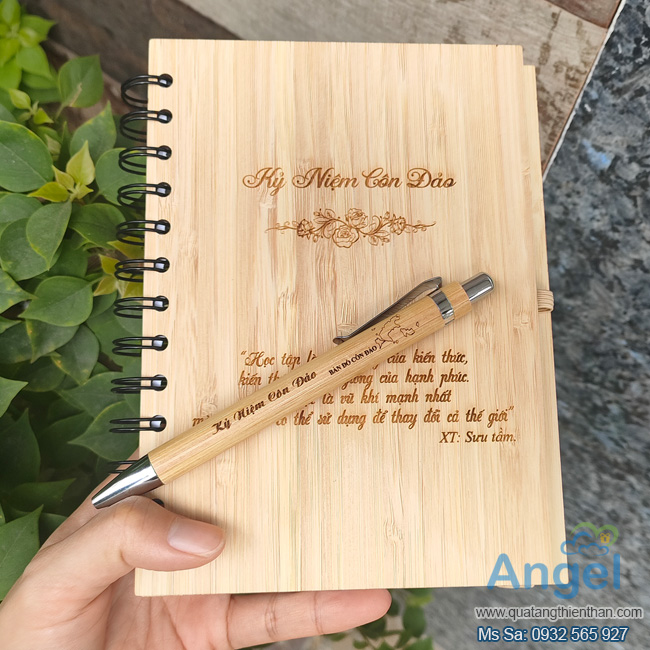 Kỷ Niệm Côn Đảo
"Học tập của kiến thức,
kiến của hạnh phúc.
là vũ khí mạnh nhất
thể sử dụng để thay đổi cả thế giới"
XT: Sưu tầm.
Kỷ Niệm Côn Đảo
BẢN ĐỒ CÔN ĐẢO
Angel
www.quatangthienthan.com
Ms Sa: 0932 565 927